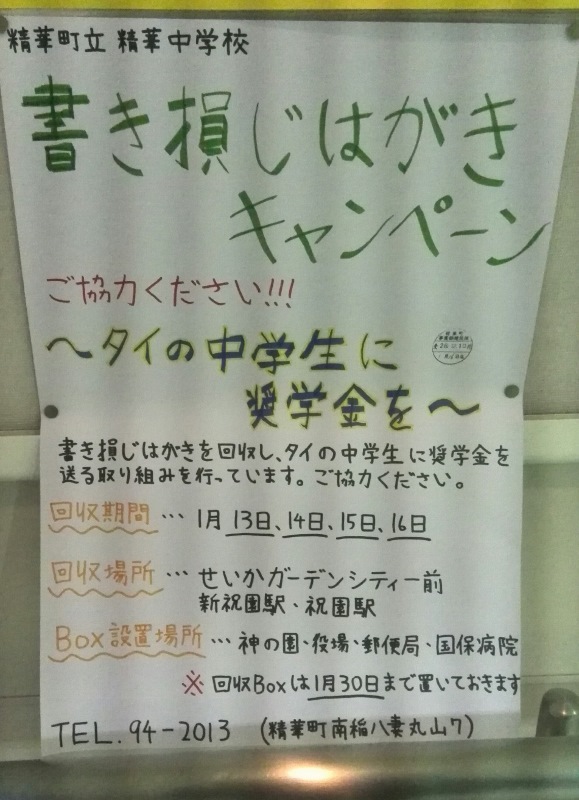 精華町立 精華中学校
書き損じはがき
キャンペーン
ご協力ください!!!
～タイの中学生に
奨学金を～
書き損じはがきを回収し、タイの中学生に奨学金を
送る取り組みを行っています。ご協力ください。
回収期間 … 1月 13日、14日、15日、16日
回収場所 … せいかガーデンシティー前
新祝園駅・祝園駅
Box設置場所 … 神の園・役場・郵便局・国保病院
※ 回収Boxは1月30日まで置いておきます
TEL. 94-2013 (精華町南稲八妻丸山7)